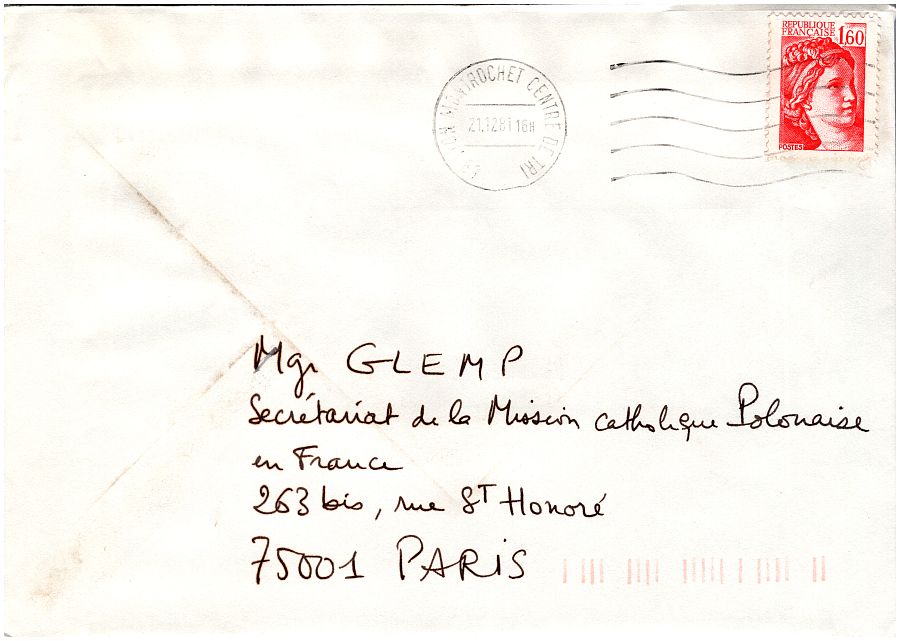 REPUBLIQUE
FRANÇAISE
1,60
POSTES
LYON MONTROCHET CENTRE DE TRI
21.12 81 16H
Mgr GLEMP
Secrétariat de la Mission catholique Polonaise
en France
263 bis, rue St Honoré
75001 PARIS